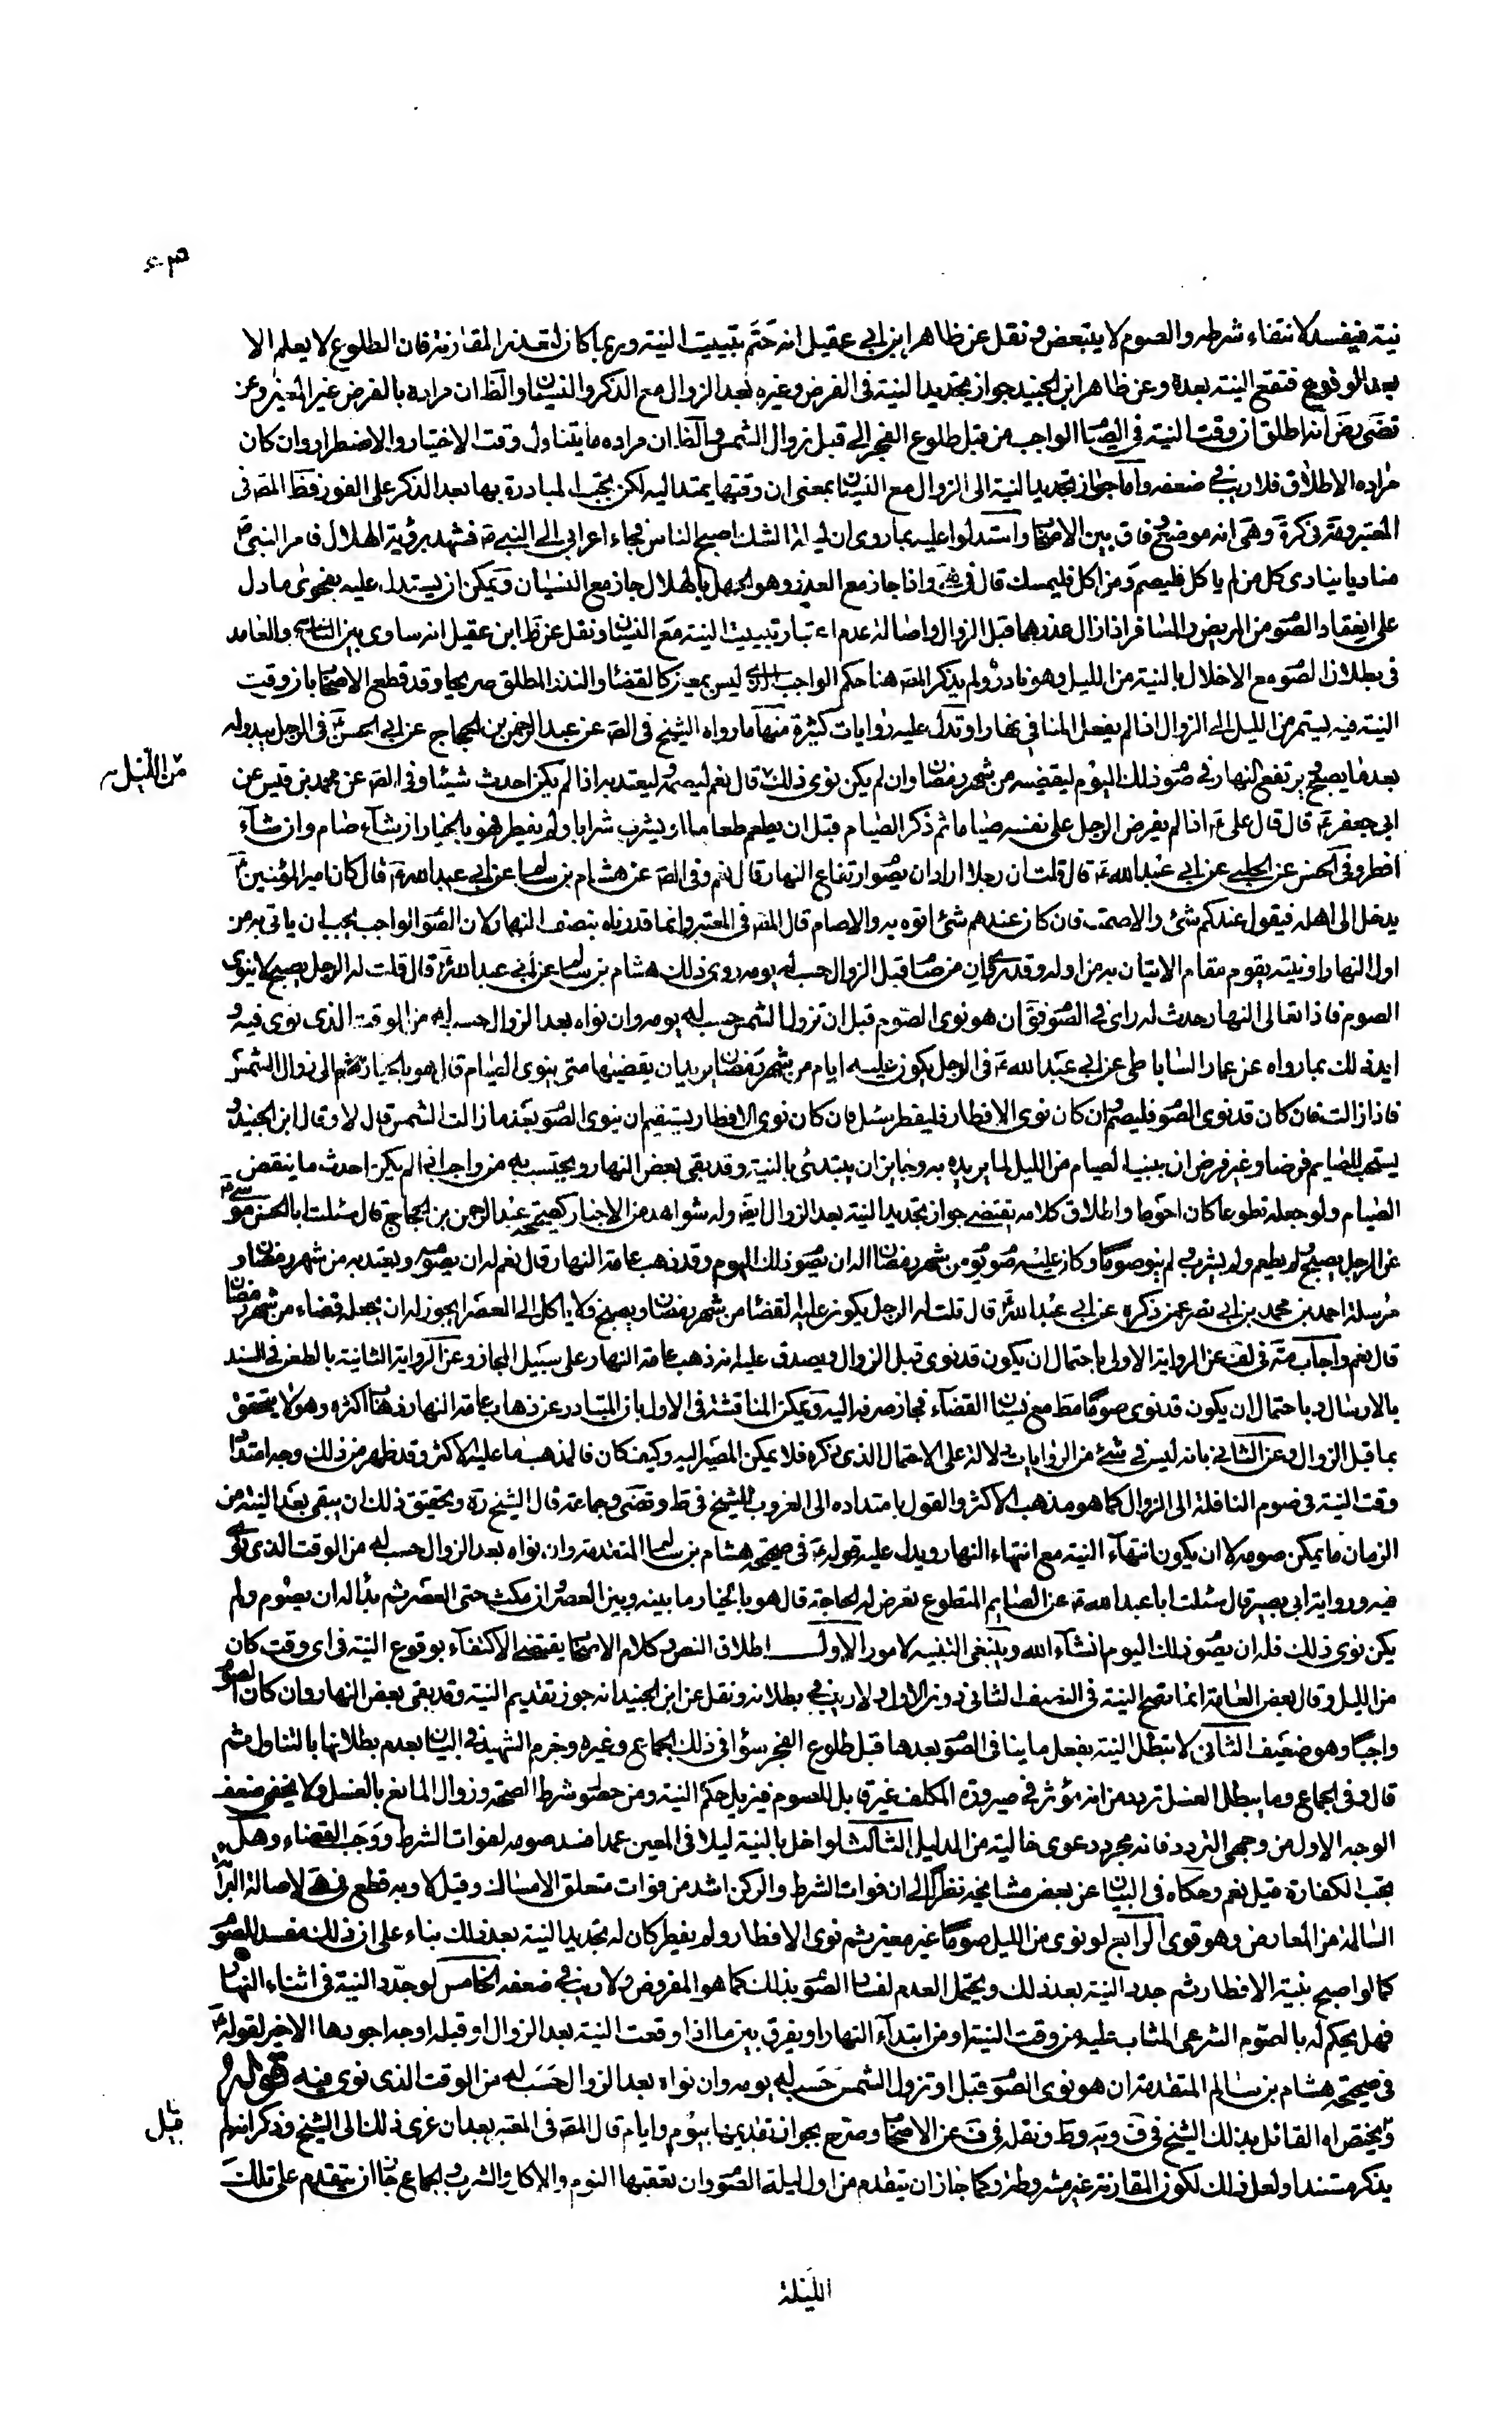 نية فيفسد لانتفاء شرطه والصوم لا يتبعض ونقل عن ظاهر ابن ابي عقيل انه حتم تبييت النية وربما كان لتعذر المقارنة فان الطلوع لا يعلم الا
بعد الوقوع فتقع النية بعده وعن ظاهر ابن الجنيد جواز تجديد النية فى الفرض وغيره بعد الزوال مع الذكر والنسيان والظ ان مراده بالفرض غير المعين وعن
تضى رض انه اطلق ان وقت النية فى الصيام الواجب من قبل طلوع الفجر الى قبل زوال الشمس والظ ان مراده ما يتناول وقت الاختيار والاضطرار وان كان
مراده الاطلاق فلا ريب فى ضعفه واما جواز تجديد النية الى الزوال مع النسيان بمعنى ان وقتها يمتد اليه لكن يجب المبادرة بها بعد الذكر على الفور فظ المص فى
المعتبر وفى كرة وهى انه موضع وفاق بين الاصحاب واستدلوا عليه بما روى ان ليلة الشك اصبح الناس فجاء اعرابى الى النبي ص فشهد برؤية الهلال فامر النبى ص
مناديا ينادى كل من لم ياكل فليصم ومن اكل فليمسك قال فى واذا جاز مع العذر وهو الجهل بالهلال جاز مع النسيان ويمكن ان يستدل عليه بفحوى ما دل
على انعقاد الصوم من المريض والمسافر اذا زال عذرهما قبل الزوال واصالة عدم اعتبار تبييت النية مع النسيان ونقل عن ظ ابن عقيل انه ساوى بين الناسي والعامد
فى بطلان الصوم مع الاخلال بالنية من الليل وهو نادر ولم يذكر المص هنا حكم الواجب الذي ليس بمعين كالقضاء والنذر المطلق صريحا وقد قطع الاصحاب بان وقت
النية فيه يستمر من الليل الى الزوال اذا لم يفعل المنافي نهارا وتدل عليه روايات كثيرة منها ما رواه الشيخ فى الص عن عبد الرحمن بن الحجاج عن ابى الحسن ع فى الرجل يبدو له
بعد ما يصبح ويرتفع النهار فى صوم ذلك اليوم ليقضيه من شهر رمضان وان لم يكن نوى ذلك قال نعم ليصمه ليعتد به اذا لم يكن احدث شيئا وفى الص عن محمد بن قيس عن
من الليل
ابى جعفر ع قال قال على ع اذا لم يفرض الرجل على نفسه صياما ثم ذكر الصيام قبل ان يطعم طعاما او يشرب شرابا ولم يفطر فهو بالخيار ان شاء صام وان شاء
افطر وفى الحسن عن الحلبي عن ابى عبد الله ع قال قلت ان رجلا اراد ان يصوم ارتفاع النهار قال نعم وفى الص عن هشام بن سالم عن ابى عبد الله ع قال كان امير المؤمنين ع
يدخل الى اهله فيقول عندكم شئ والا صمت فان كان عندهم شئ اتوه به والا صام قال المص فى المعتبر وانما قدرناه بنصف النهار لان الصوم الواجب يجب ان ياتى به من
اول النهار او نيته يقوم مقام الاتيان به من اوله وقد من صام قبل الزوال حسب له يومه روى ذلك هشام بن سالم عن ابى عبد الله ع قال قلت له الرجل يصبح لا ينوى
الصوم فاذا تعالى النهار حدث له راى فى الصوم فق ان هو نوى الصوم قبل ان تزول الشمس حسب له يومه وان نواه بعد الزوال حسب له من الوقت الذى نوى فيه و
ايد ذلك بما رواه عن عمار الساباطى عن ابى عبد الله ع فى الرجل يكون عليه ايام من شهر رمضان يريد ان يقضيها متى ينوى الصيام قال هو بالخيار الى زوال الشمس
فاذا زالت فان كان قد نوى الصوم فليصم وان كان نوى الافطار فليفطر سئل فان كان نوى الافطار يستقيم ان ينوى الصوم بعد ما زالت الشمس قال لا وقال ابن الجنيد و
يستحب للصايم فرضا وغير فرض ان يبيت الصيام من الليل لما يريده به وجايز ان يبتدئ بالنية وقد بقى بعض النهار ويحتسب به من واجب اذا لم يكن احدث ما ينقض
الصيام ولو جعله تطوعا كان احوط واطلاق كلامه يقتضى جواز تجديد النية بعد الزوال ايضا وله شواهد من الاخبار كصحيحة عبد الرحمن بن الحجاج قال سئلت ابا الحسن موسى ع
عن الرجل يصبح لم يطعم ولم يشرب ولم ينو صوما وكان عليه صوم يوم من شهر رمضان اله ان يصوم ذلك اليوم وقد ذهب عامة النهار قال نعم له ان يصومه ويعتد به من شهر رمضان و
مرسلة احمد بن محمد بن ابى نصر عمن ذكره عن ابى عبد الله ع قال قلت له الرجل يكون عليه القضاء من شهر رمضان ويصبح فلا ياكل الى العصر ايجوز له ان يجعله قضاء من شهر رمضان
قال نعم واجاب مة فى لف عن الرواية الاولى باحتمال ان يكون قد نوى قبل الزوال ويصدق عليه انه ذهب عامة النهار على سبيل المجاز وعن الرواية الثانية بالطعن فى السند
بالارسال وباحتمال ان يكون قد نوى صوما مط مع نسيان القضاء فجاز صرفه اليه ويمكن المناقشة فى الاول بان المتبادر عن ذهاب عامة النهار ذهاب اكثره وهو لا يتحقق
بما قبل الزوال وعن الثانى بانه ليس فى شئ من الروايات دلالة على الاحتمال الذى ذكره فلا يمكن المصير اليه وكيف كان فالمذهب ما عليه الاكثر وقد ظهر من ذلك وجه امتداد
وقت النية فى صوم النافلة الى الزوال كما هو مذهب الاكثر والقول بامتداده الى الغروب للشيخ فى ط وتضى وجماعة قال الشيخ ره وتحقيق ذلك ان يبقى بعد النية من
الزمان ما يمكن صومه لا ان يكون انتهاء النية مع انتهاء النهار ويدل عليه قوله ع فى صحيحة هشام بن سالم المتقدمة وان نواه بعد الزوال حسب له من الوقت الذى نوى
فيه ورواية ابى بصير قال سئلت ابا عبد الله ع عن الصايم المتطوع تعرض له الحاجة قال هو بالخيار ما بينه وبين العصر وان مكث حتى العصر ثم بدا له ان يصوم ولم
يكن نوى ذلك فله ان يصوم ذلك اليوم انشاء الله وينبغى التنبيه لامور الاول اطلاق النص وكلام الاصحاب يقتضى الاكتفاء بوقوع النية فى اى وقت كان
من الليل وقال بعض العامة انما تصح النية فى النصف الثانى دون الاول ولا ريب فى بطلانه ونقل عن ابن الجنيد انه جوز تقديم النية وقد بقى بعض النهار وان كان الصوم
واجبا وهو ضعيف الثانى لا تبطل النية بفعل ما ينافى الصوم بعدها قبل طلوع الفجر سواء فى ذلك الجماع وغيره وجزم الشهيد فى البيان بعدم بطلانها بالتناول ثم
قال وفى الجماع وما يبطل الغسل تردد من انه مؤثر فى صيرورة المكلف غير قابل للصوم فيزيل حكم النية ومن حصول شرط الصحة وزوال المانع بالغسل ولا يخفى ضعف
الوجه الاول من وجهى التردد فانه مجرد دعوى خالية من الدليل الثالث لو اخل بالنية ليلا فى المعين عمدا فسد صومه لفوات الشرط ووجب القضاء وهل
يجب الكفارة قيل نعم وحكاه فى البيان عن بعض مشايخه نظرا الى ان فوات الشرط والركن اشد من فوات متعلق الامساك وقيل لا وبه قطع فى هى لاصالة البرائة
السالمة من المعارض وهو قوى الرابع لو نوى من الليل صوما غير معين ثم نوى الافطار ولم يفطر كان له تجديد النية بعد ذلك بناء على ان ذلك مفسد للصوم
كما لو اصبح بنية الافطار ثم جدد النية بعد ذلك ويحتمل العدم لفساد الصوم بذلك كما هو المفروض ولا ريب فى ضعفه الخامس لو جدد النية فى اثناء النهار
فهل يحكم له بالصوم الشرعى المثاب عليه من وقت النية او من ابتداء النهار او يفرق بين ما اذا وقعت النية بعد الزوال او قبله اوجه اجودها الاخير لقوله ع
فى صحيحة هشام بن سالم المتقدمة ان هو نوى الصوم قبل ان تزول الشمس حسب له يومه وان نواه بعد الزوال حسب له من الوقت الذى نوى فيه قوله
القائل بذلك الشيخ فى ف ويه وط ونقله فى ف عن الاصحاب وصرح بجواز تقديمها بيوم وايام قال المص فى المعتبر بعد ان عزى ذلك الى الشيخ وذكر انه لم
قيل
يذكر مستندا ولعل ذلك لكون المقارنة غير مشروطة وكما جاز ان يتقدم من اول ليلة الصوم وان تعقبها النوم والاكل والشرب والجماع جاز ان يتقدم على تلك
الليلة